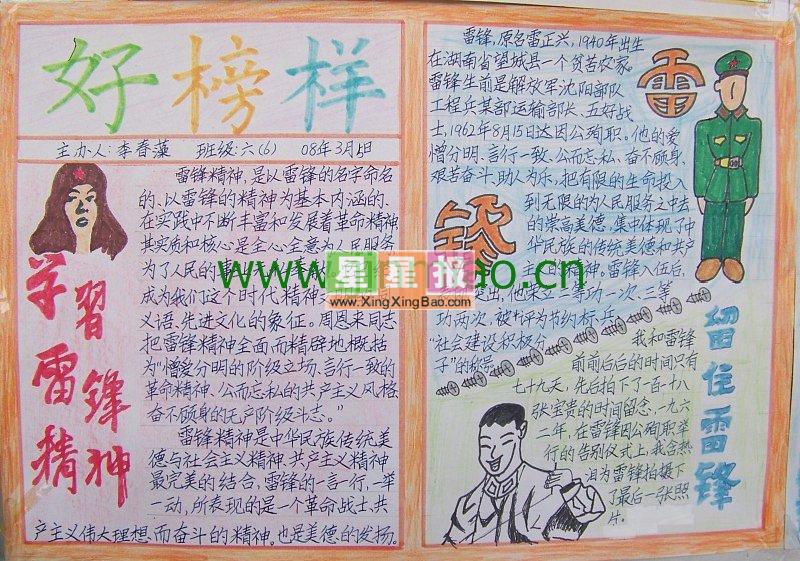 好榜样
主办人:李春藻 班级:六(6) 08年3月5日
雷锋精神,是以雷锋的名字命名
的、以雷锋的精神为基本内涵的、
在实践中不断丰富和发展着革命精神
其实质和核心是全心全意为人民服务
为了人民的事
成为我们这个时代精神文
义语、先进文化的象征。周恩来同志
把雷锋精神全面而精辟地概括
为“憎爱分明的阶级立场、言行一致的
革命精神、公而忘私的共产主义风格、
奋不顾身的无产阶级斗志。”
雷锋精神是中华民族传统美
德与社会主义精神、共产主义精神
最完美的结合,雷锋的一言行,一举
一动,所表现的是一个革命战士,共
产主义伟大理想、而奋斗的精神。也是美德的发扬。
学習
雷鋒
精神
雷锋,原名雷正兴,1940年出生
在湖南省望城县一个贫苦农家。
雷锋生前是解放军沈阳部队
工程兵某部运输部长、五好战
士,1962年8月15日达因公殉职。他的爱
憎分明、言行一致、公而忘私、奋不顾身、
艰苦奋斗、助人为乐,把有限的生命投入
到无限的为人民服务之中去
的崇高美德,集中体现了中
华民族的传统美德和共产
主义的精神,雷锋入伍后,
突出,他荣立二等功一次、三等
功两次,被评为节约标兵
“社会建设积极分
子”的称号
雷
锋
我和雷锋
前前后后的时间只有
七十九天,先后拍下了一百一十八
张宝贵的时间留念,一九六
二年,在雷锋因公殉职举
行的告别仪式上,我含热
泪为雷锋拍摄下
了最后一张照
片。
留住雷锋
www.
bao.cn
星星报
www.XingXingBao.com